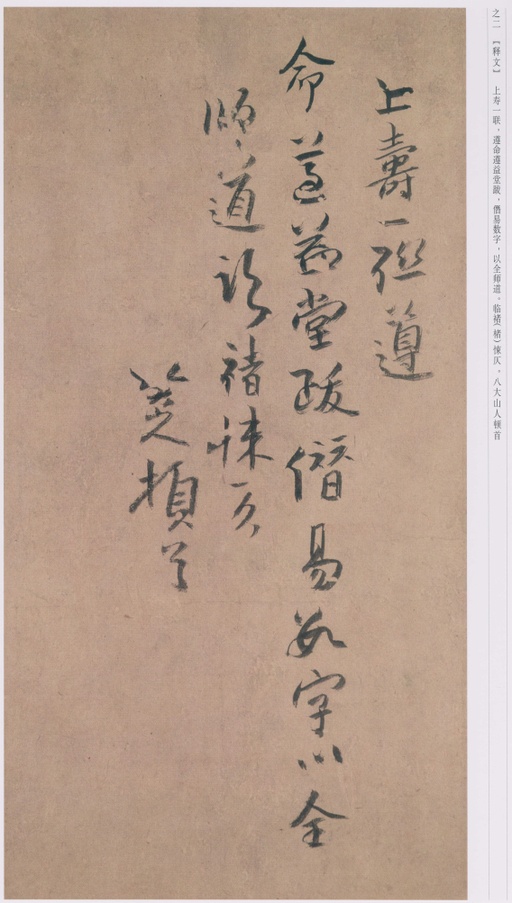 之二 【释文】 上寿一联，遵命遵益堂跋，僭易数字，以全师道。临禇（楮）悚仄。八大山人顿首
上壽一聯遵
命遵益堂跋僭易數字以全
師道臨禇悚仄
八大山人頓首